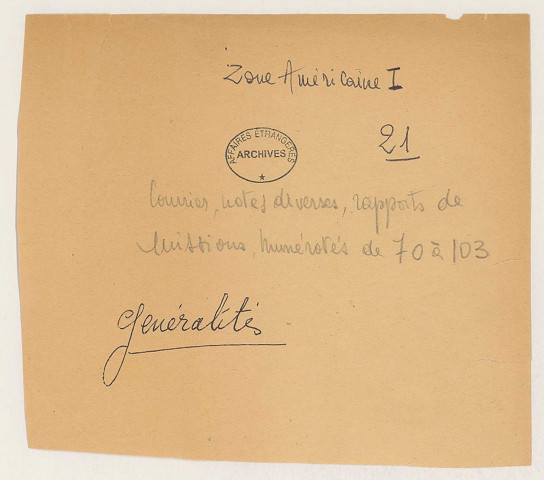 Zone Américaine I
21
AFFAIRES ETRANGERES
ARCHIVES
Courrier, notes diverses, rapports de
Missions, numérotés de 70 à 103
Généralités